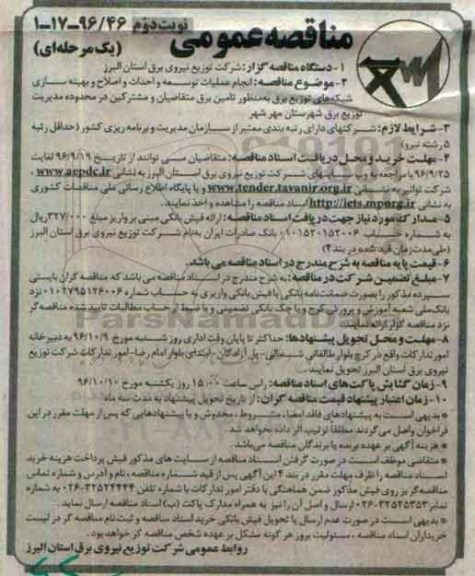 نوبت دوم ۹۶/۴۶-۱۷-۱
مناقصه عمومی
(یک مرحله‌ای)
۱-دستگاه مناقصه گزار: شرکت توزیع نیروی برق استان البرز
۲-موضوع مناقصه: انجام عملیات توسعه و احداث و اصلاح و بهینه سازی
شبکه‌های توزیع برق به‌منظور تامین برق متقاضیان و مشترکین در محدوده مدیریت
توزیع برق شهرستان مهرشهر
۳-شرایط لازم: شرکتهای دارای رتبه بندی معتبر از سازمان مدیریت و برنامه ریزی کشور (حداقل رتبه
۵ رشته نیرو)
۴-مهلت خرید و محل دریافت اسناد مناقصه: متقاضیان می توانند از تاریخ ۹۶/۹/۱۹ لغایت
۹۶/۹/۲۵ با مراجعه به وب سایتهای شرکت توزیع نیروی برق استان البرز به نشانی www.aepdc.ir،
شرکت توانیر به نشانی www.tender.tavanir.org.ir و یا پایگاه اطلاع رسانی ملی مناقصات کشوری
به نشانی http://iets.mporg.ir اسناد مناقصه را مشاهده و اخذ نمایند.
۵-مدارک مورد نیاز جهت دریافت اسناد مناقصه: ارائه فیش بانکی مبنی بر واریز مبلغ ۳۲۷/۰۰۰ ریال
به شماره حساب ۰۱۰۱۵۲۰۱۵۲۰۰۶ بانک صادرات ایران به‌نام شرکت توزیع نیروی برق استان البرز
(طی مدت زمان قید شده در بند ۴)
۶-قیمت پایه مناقصه به شرح مندرج در اسناد مناقصه می باشد.
۷-مبلغ تضمین شرکت در مناقصه: به شرح مندرج در اسناد مناقصه می باشد که مناقصه گران بایستی
سپرده مذکور را بصورت ضمانت‌نامه بانکی یا فیش بانکی واریزی به حساب شماره ۰۱۰۲۷۹۵۱۲۶۰۰۶ نزد
بانک ملی شعبه آموزش و پرورش کرج و یا چک بانکی تضمینی و یا ضبط از حساب مطالبات تایید شده مناقصه گر
نزد مناقصه گزار ارائه نمایند.
۸-مهلت و محل تحویل پیشنهادها: حداکثر تا پایان وقت اداری روز شنبه مورخ ۹۶/۱۰/۹ به دبیرخانه
امور تدارکات واقع در کرج بلوار طالقانی شمالی- پل آزادگان- ابتدای بلوار امام رضا- امور تدارکات شرکت توزیع
نیروی برق استان البرز تحویل نمایند.
۹-زمان گشایش پاکت‌های اسناد مناقصه: راس ساعت ۱۵:۰۰ روز یکشنبه مورخ ۹۶/۱۰/۱۰
۱۰-زمان اعتبار پیشنهاد قیمت مناقصه گران: از تاریخ تحویل پیشنهاد به مدت سه ماه
* بدیهی است به پیشنهادهای فاقد امضاء، مشروط، مخدوش و یا پیشنهادهایی که پس از مهلت مقرر در این
فراخوان واصل می گردند مطلقا ترتیب اثر داده نخواهد شد.
* هزینه آگهی بر عهده برنده یا برندگان مناقصه می‌باشد.
* متقاضی موظف است در صورت گرفتن اسناد مناقصه از سایت های مذکور فیش پرداخت هزینه خرید
اسناد مناقصه را ظرف مهلت مقرر در بند ۴ این آگهی پس از قید شماره مناقصه، نام و آدرس و شماره تماس
مناقصه‌گر بر روی فیش مذکور ضمن هماهنگی با دفتر امور تدارکات با شماره تلفن ۳۲۵۲۴۴۴۴-۰۲۶ به شماره
نمابر ۳۲۵۲۵۳۵۳-۰۲۶ ارسال و اصل آن را نیز به همراه مدارک پاکت (ب) اسناد مناقصه ارسال نماید.
* بدیهی است در صورت عدم ارسال یا تحویل فیش بانکی خرید اسناد مناقصه و ثبت نام مناقصه گر در لیست
خریداران اسناد مناقصه، مسئولیت بروز هر گونه مشکل بر عهده شخص مناقصه گر خواهد بود.
روابط عمومی شرکت توزیع نیروی برق استان البرز